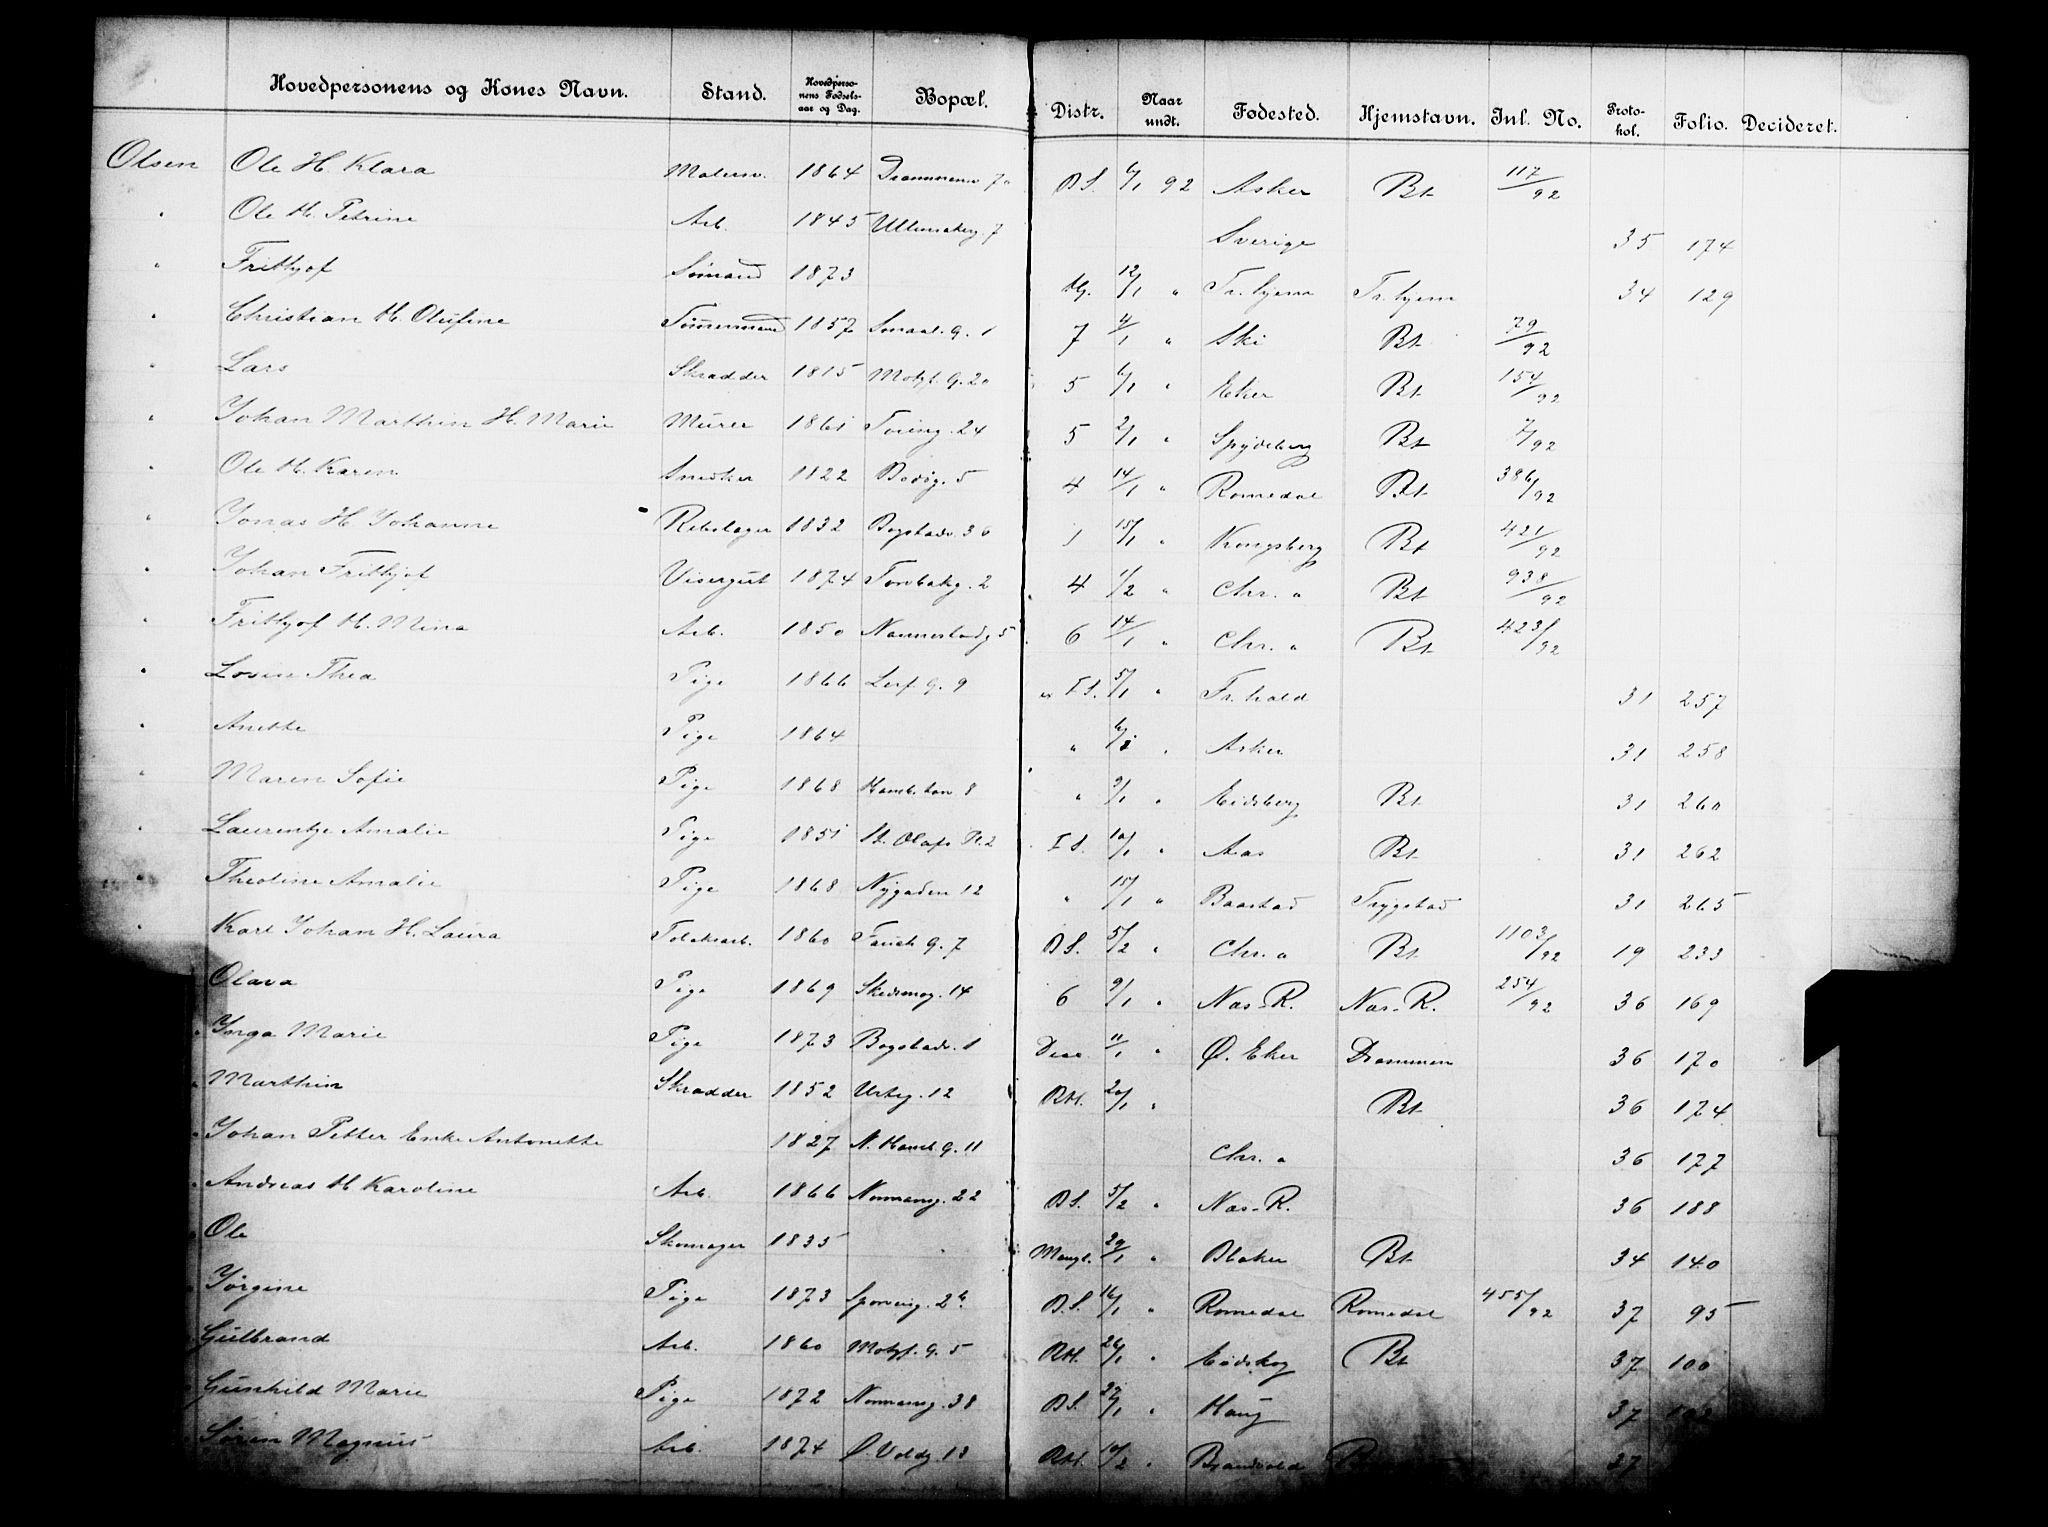 Hovedpersonens og Kones Navn. Stand. Hovedperso-nens Fødsels-aar og Dag. Bopæl. Distr. Naar undt. Fødested. Hjemstavn. Inl. No. Proto-kol. Folio. Decideret.
Olsen Ole H. Klara 1864 B S. 6/1 92 Asker Bt 117/92
" Ole H. Petrine Arb. 1845 Sverige 35 174
" Frithjof Sømand 1873 12/1 " Fr. hjem 34 129
" Christian H. Olufine Tømmermand 1857 Smaal. g. 1 7 4/1 " Ski Bt 79/92
" Lars Skrædder 1815 Motzf. g. 20 5 6/1 " Eker Bt 154/92
" Johan Marthin H. Marie Murer 1861 Tøieng. 24 5 2/1 " Spydeberg Bt 7/92
" Ole H. Karen Snedker 1822 Bodøg. 5 4 14/1 " Romedal Bt 386/92
" Jonas H. Johanne Rebslager 1832 Bogstadv. 36 1 15/1 " Kongsberg Bt 421/92
" Johan Frithjof Visergut 1874 Torvbakg. 2 4 1/2 " Chr. a Bt 938/92
" Frithjof H. Mina Arb. 1850 Nannestadg 5 6 14/1 " Chr. a Bt 423/92
" Lovise Thea Pige 1866 g. 9 5/1 " Fr. hald 31 257
" Anette Pige 1864 " " Asker 31 258
" Maren Sofie Pige 1868 8 " 9/1 " Eidsberg Bt 31 260
" Laurentze Amalie Pige 1851 St. Olafs Pl. 2 I S. 10/1 " Aas Bt 31 262
" Theoline Amalie Pige 1868 Nygaden 12 " 15/1 " Baastad Trygstad 31 265
" Karl Johan H. Laura 1860 g. 7 B S. 5/2 " Chr. a Bt 1103/92 19 233
Olava Pige 1869 Skedsmog. 14 6 9/1 " Næs-R. Næs-R. 254/92 36 169
" Inga Marie Pige 1873 Bogstadv. 1 11/1 " Ø. Eker Drammen 36 170
" Marthin Skrædder 1852 Urteg. 12 RH. 20/1 " Bt 36 174
" Johan Petter Enke Antonette 1827 N. g. 11 Chr. a 36 177
" Andreas H. Karoline Arb. 1866 Normansg. 22 B S. 5/2 " Næs-R. 36 188
" Ole Skomager 1835 Mangl. 29/1 " Blaker Bt 34 140
" Jørgine Pige 1873 Sporveisg. 2b. B. S. 16/1 " Romedal Romedal 455/92 37 95
Gulbrand Arb. 1860 Motzf. g. 5 RH. 26/1 " Eidskog Bt 37 100
Gunhild Marie Pige 1872 Normansg. 38 B S. 27/1 " Haug 37 102
Søren Magnus Arb. 1874 Ø. Voldg. 13 RH. 10/2 " Brandvold 37